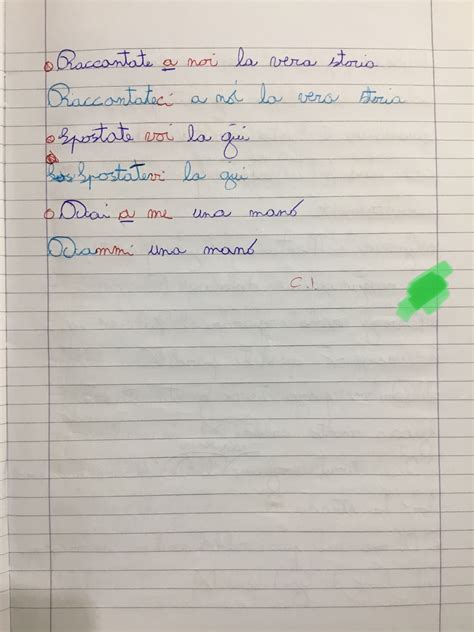 Raccontate a noi la vera storia
Riaccontateci a noi la vera storia
Spostate voi la qui
Spostatevi la qui
Dai a me una mano
Diammi una mano
C.I.